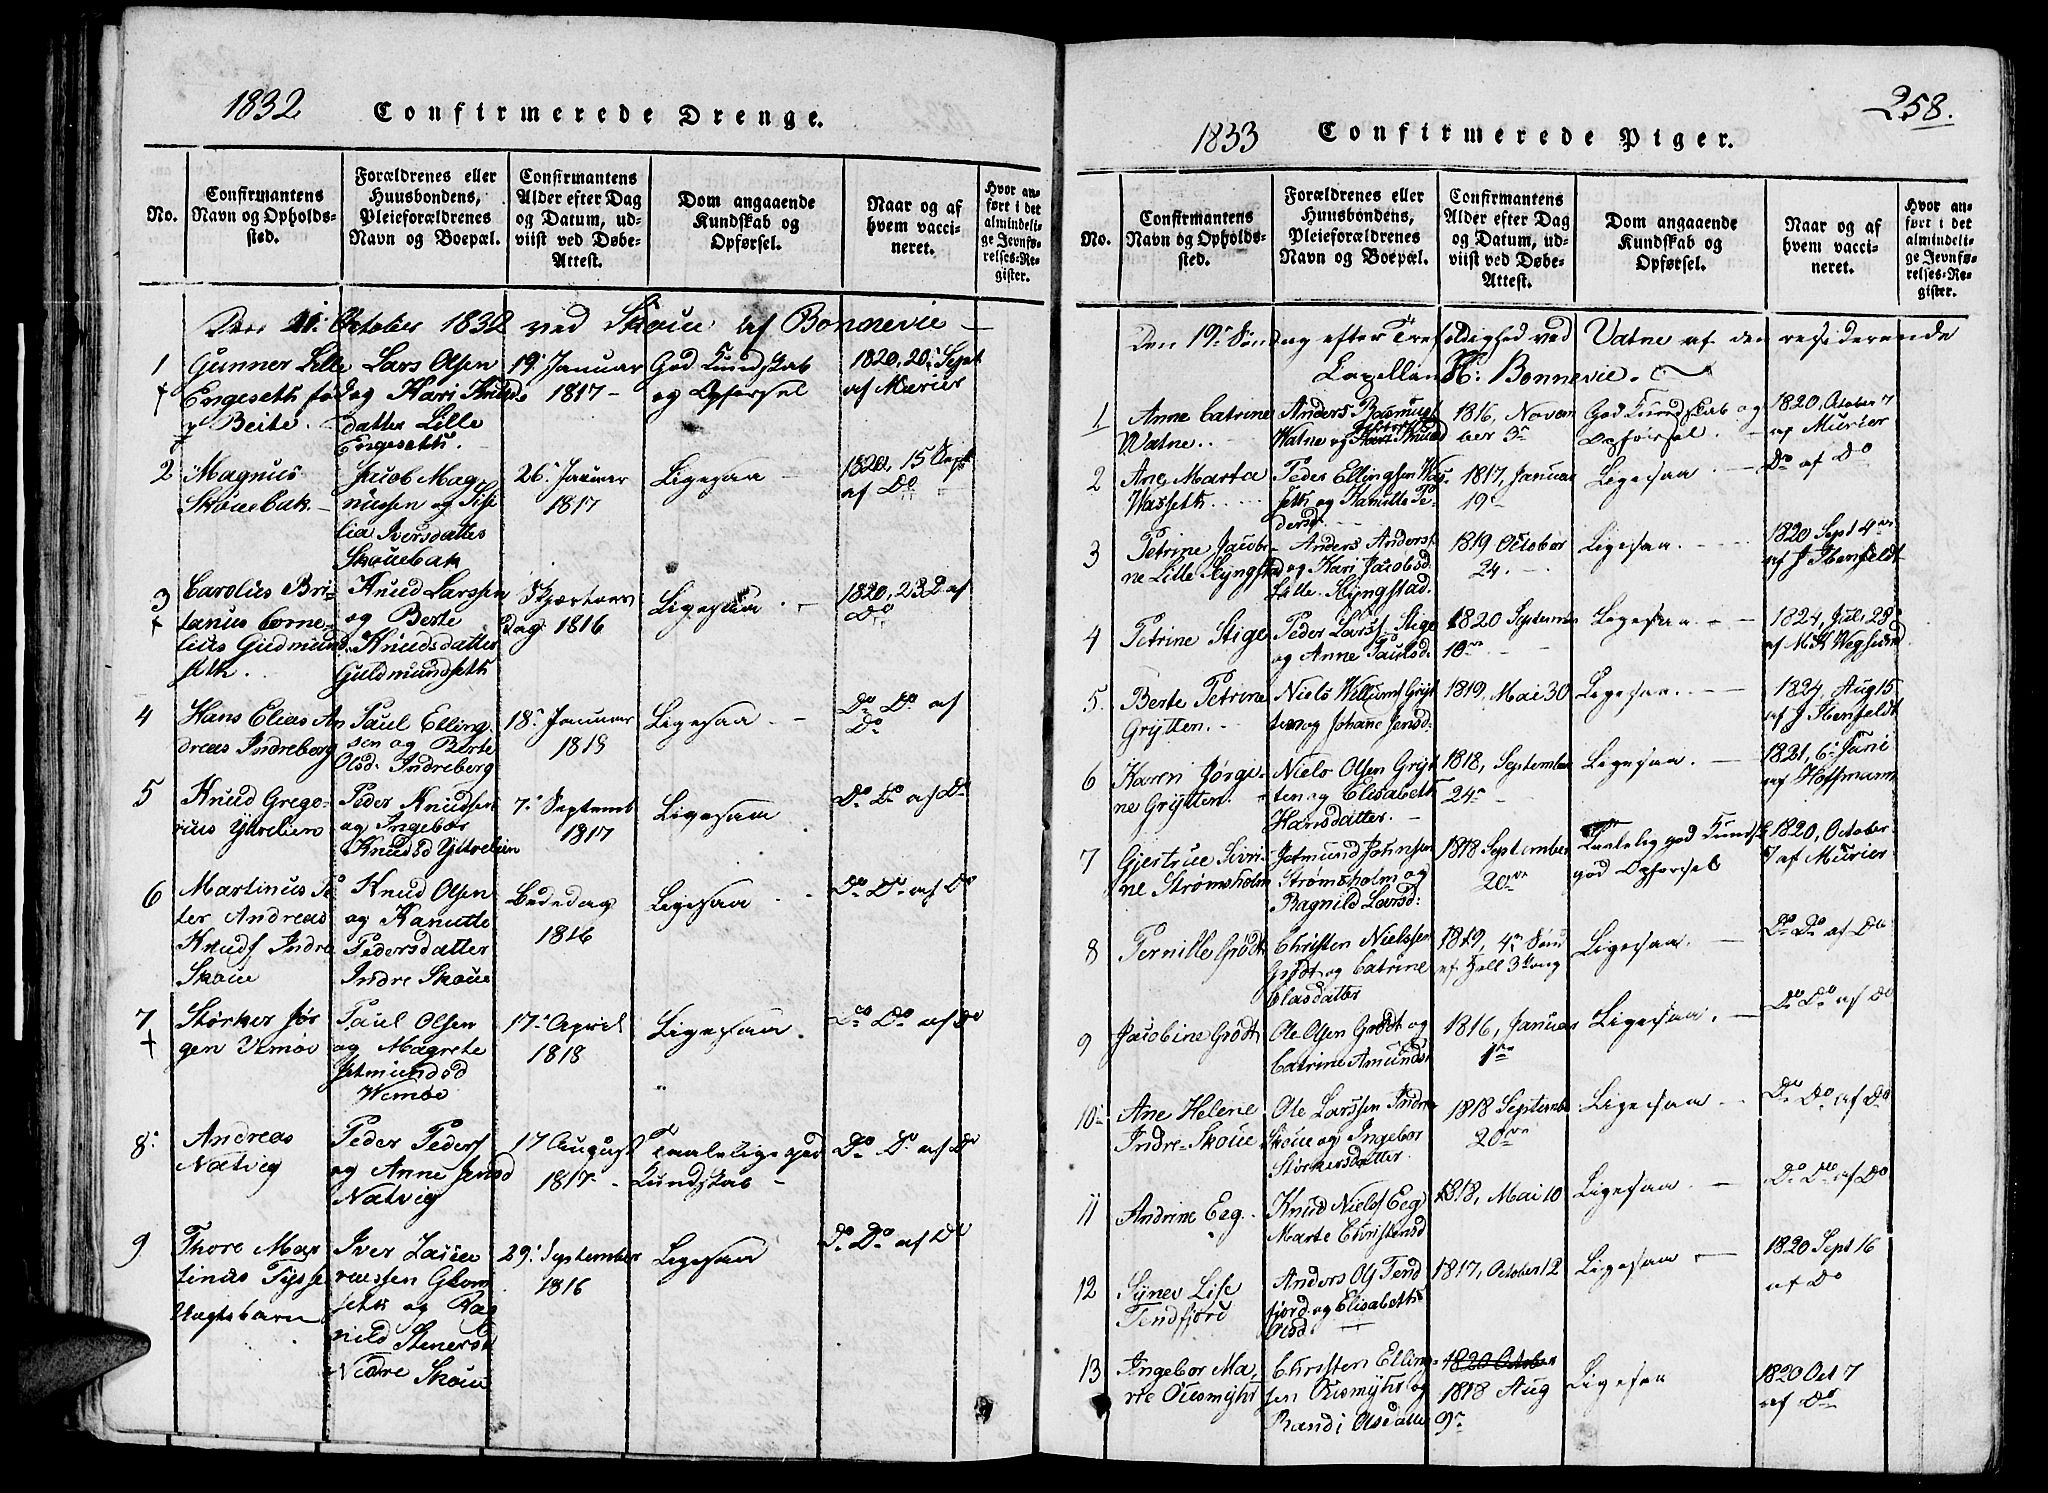 1832 Confirmerede Drenge.
No.
Confirmantens
Navn og Opholds-
sted.
Forældrenes eller
Huusbondens,
Pleieforældrenes
Navn og Boepæl.
Confirmantens
Alder efter Dag
og Datum, ud-
viist ved Døbe-
Attest.
Dom angaaende
Kundskab og
Opførsel.
Naar og af
hvem vacci-
neret.
Hvor an-
ført i det
almindeli-
ge Jevnfø-
relses-Re-
gister.
Den 21. October 1832 ved Skoue af Bonnevie
1
Gunner Lille
Engeseth
Beite.
Lars Olsen
og Kari Knuds-
datter Lille
Engeseth.
19. Januar
1817
God Kundskab
og Opførsel
1820, 20. Sept
af Murier
2
Magnus
Skouebak.
Jacob Mag
nussen og Sise
lia Iversdatter
Skouebak
26. Januar
1817
Ligesaa
1820, 15 Sept
af Do
3
Carolus Bri-
tanus Corne-
lius Gudmund
seth.
Knud Larssen
og Berte
Knudsdatter
Guldmundseth
Skjærtors
dag 1816
Ligesaa
1820, 23 af
Do
4
Hans Elias An
dreas Indreberg
Paul Elling
sen og Berte
Olsd. Indreberg
18. Januar
1818
Ligesaa
Do Do af
Do
5
Knud Grego-
rius Yttrelien
Peder Knudsen
og Ingebor
Knudsd Yttrelien
7. Septemb
1817
Ligesaa
Do Do af Do
6
Martinus Pe
ter Andreas
Knuds Indre
Skoue
Knud Olsen
og Kanutte
Pedersdatter
Indre Skoue
Bededag
1816
Ligesaa
Do Do af Do
7
Størker Jør
gen Vemøe
Paul Olsen
og Magrete
Jetmundsd
Wemøe
17. April
1818
Ligesaa
Do Do af Do
8.
Andreas
Natvig
Peder Peders
og Anne Jensd
Natvig
17 August
1817
Taalelige god
Kundskab
Do Do af Do
9
Thore Mar
tinus Tysse
Uagtsbarn
Iver Laue
raussen Glom
seth og Rag
nild Stenersd
Nedre Skoue
29. September
1816
Ligesaa
Do Do af Do
258.
1833 Confirmerede Piger.
No.
Confirmantens
Navn og Opholds-
sted.
Forældrenes eller
Huusbondens,
Pleieforældrenes
Navn og Boepæl.
Confirmantens
Alder efter Dag
og Datum, ud-
viist ved Døbe-
Attest.
Dom angaaende
Kundskab og
Opførsel.
Naar og af
hvem vacci-
neret.
Hvor an-
ført i det
almindeli-
ge Jevnfø-
relses-Re-
gister.
Den 19. Søndag efter Trefoldighed ved Vatne af den residerende
Capellan Hr. Bonnevie.
1
Anne Catrine
Watne.
Anders Rasmus
Watne og Kari Knudsd
1816, Novem
ber 3
God Kundskab og
Opførsel.
1820, October 7
af Murier
2
Ane Marta
Wasseth
Peder Ellingsen Was
seth og Kanutte Pe-
dersd.
1817, Januar
19
Ligesaa
Do af Do
3
Petrine Jacobi-
ne Lille Slyngstad
Anders Anders
og Kari Jacobsd
Lille Slyngstad.
1819 October
24.
Ligesaa
1820 Sept 4
af J Ibenfeldt
4
Petrine Stige
Peder Lars Stige
og Anne Paulsd.
1820 September
10
Ligesaa
1824, Jul. 28
af M K Wegsund
5.
Berte Petrine
Grytten.
Niels Willums Gryt
ten og Johane Jensd.
1819, Mai 30
Ligesaa
1824, Aug 15
af J Ibenfeldt
6
Karn Jørgi-
ne Grytten.
Niels Olsen Gryt
ten og Elisabeth
Hansdatter.
1818, September
24
Ligesaa.
1821, 6. Juni
af Hoffmann
7
Gjertrue Sivri-
ne Strømsholm
Jetmund Johnsen
Strømsholm og
Ragnild Larsd.
1818 September
20
Taaleleg god Kundsk
god Opførsel
1820, October
7 af Murier
8
Pernille Grødt
Christen Nielssen
Grødt og Catrine
Elasdatter
1819, 4 Søn
ef. Hell 3 Kong
Ligesaa.
Do Do af Do
9
Jacobine Grødt
Ole Olsen Grødt og
Catrine Amunds
1816, Januar
1
Ligesaa.
Do Do af Do
10.
Ane Helene
Indre-Skoue
Ole Larssen Indre
Skoue og Ingebor
Størkersdatter
1818 Septemb
20
Ligesaa
Do Do af Do
11
Andrine Eeg.
Knud Niels Eeg
Marte Christensd
1818, Mai 10
Ligesaa
Do Do af Do
12
Synev Lise
Tendfjord
Anders Ols Tend
fjord og Elisabeth
1817, October 12
Ligesaa
1820 Sept 16
af Do
13
Ingebor Ma-
rie Ousmyhr
Christen Elling-
sen Ousmyhr og
Randi Olsdatter
1820 October
1818 Aug
9
Ligesaa
1820 Oct 7
af Do